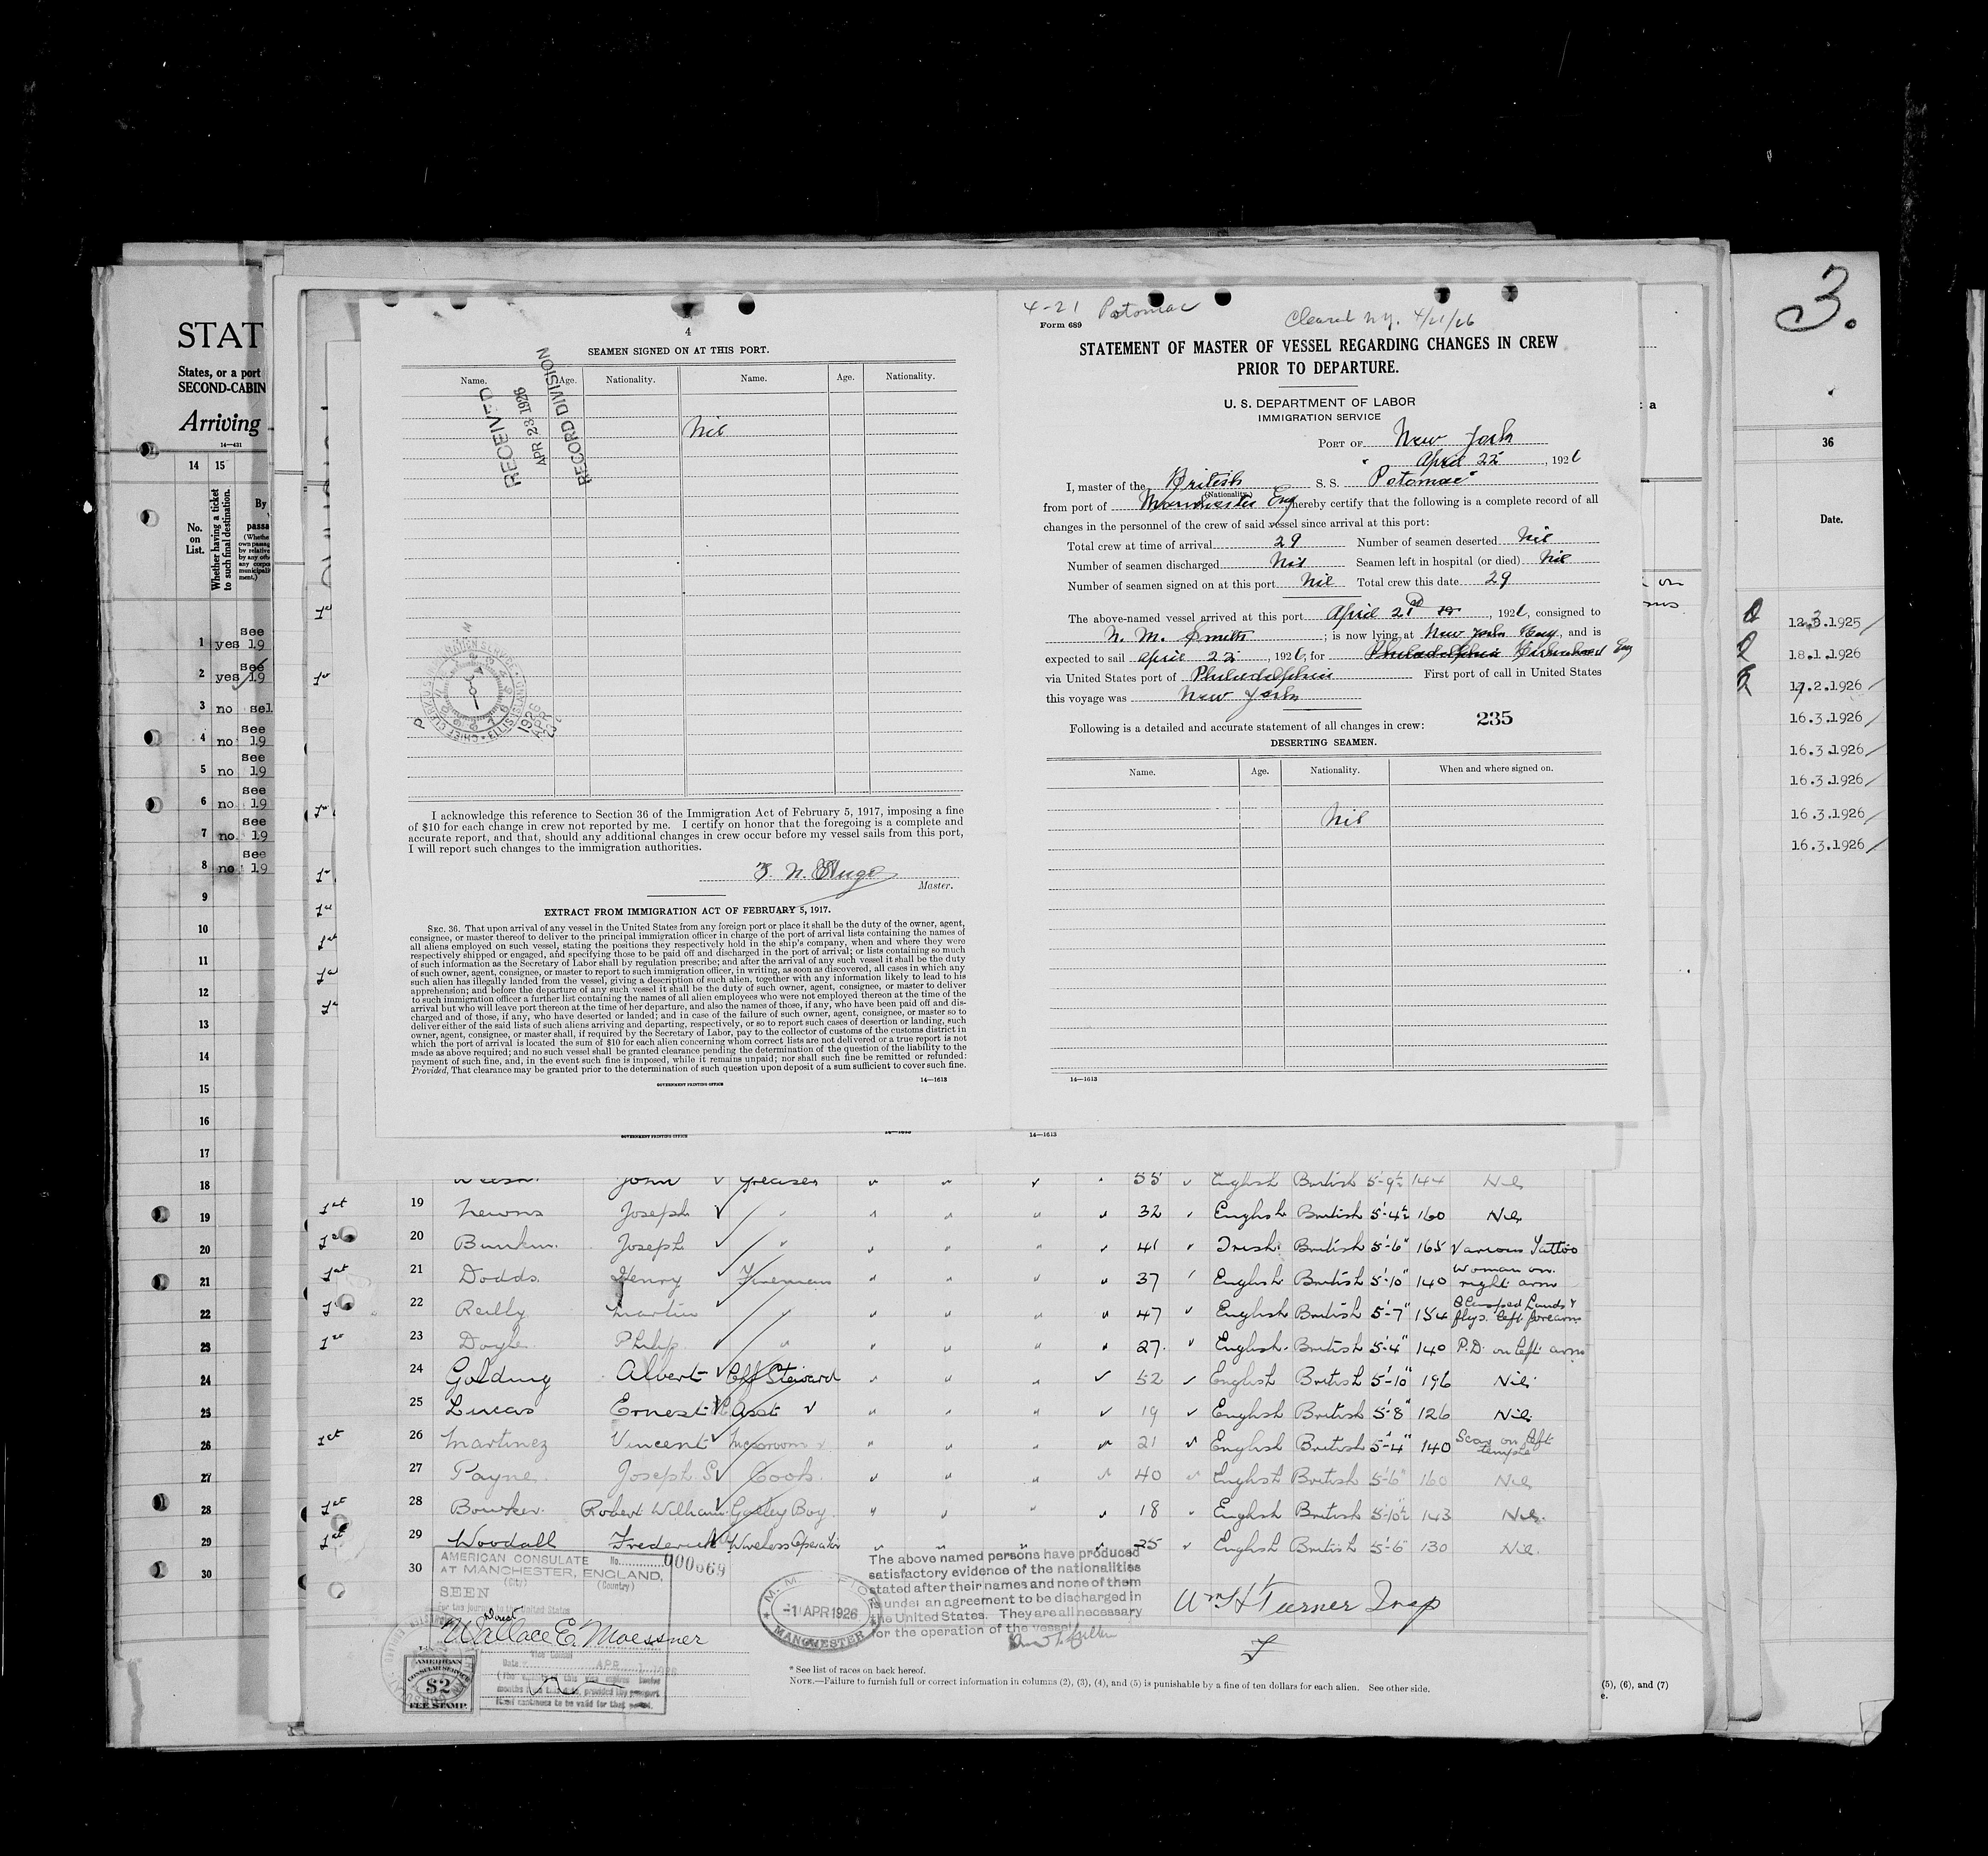 STAT
States, or a port
SECOND-CABIN
Arriving
14—431
14 15
No. on List.
Whether having a ticket to such final destination.
By
passa
1 yes see 19
2 yes see 19
3 no sel
4 no see 19
5 no see 19
6 no see 19
7 no see 19
8 no see 19
9
10
11
12
13
14
15
16
17
18
19
20
21
22
23
24
25
26
27
28
29
30
4
SEAMEN SIGNED ON AT THIS PORT.
Name. Age. Nationality. Name. Age. Nationality.
RECEIVED
APR 23 1926
RECORD DIVISION
Nil
I acknowledge this reference to Section 36 of the Immigration Act of February 5, 1917, imposing a fine
of $10 for each change in crew not reported by me. I certify on honor that the foregoing is a complete and
accurate report, and that, should any additional changes in crew occur before my vessel sails from this port,
I will report such changes to the immigration authorities.
Master.
EXTRACT FROM IMMIGRATION ACT OF FEBRUARY 5, 1917.
SEC. 36. That upon arrival of any vessel in the United States from any foreign port or place it shall be the duty of the owner, agent,
consignee, or master thereof to deliver to the principal immigration officer in charge of the port of arrival lists containing the names of
all aliens employed on such vessel, stating the positions they respectively hold in the ship's company, when and where they were
respectively shipped or engaged, and specifying those to be paid off and discharged in the port of arrival; or lists containing so much
of such information as the Secretary of Labor shall by regulation prescribe; and after the arrival of any such vessel it shall be the duty
of such owner, agent, consignee, or master to report to such immigration officer, in writing, as soon as discovered, all cases in which any
such alien has illegally landed from the vessel, giving a description of such alien, together with any information likely to lead to his
apprehension; and before the departure of any such vessel it shall be the duty of such owner, agent, consignee, or master to deliver
to such immigration officer a further list containing the names of all alien employees who were not employed thereon at the time of the
arrival but who will leave port thereon at the time of her departure, and also the names of those, if any, who have been paid off and dis-
charged and of those, if any, who have deserted or landed; and in case of the failure of such owner, agent, consignee, or master so to
deliver either of the said lists of such aliens arriving and departing, respectively, or so to report such cases of desertion or landing, such
owner, agent, consignee, or master shall, if required by the Secretary of Labor, pay to the collector of customs of the customs district in
which the port of arrival is located the sum of $10 for each alien concerning whom correct lists are not delivered or a true report is not
made as above required; and no such vessel shall be granted clearance pending the determination of the question of the liability to the
payment of such fine, and, in the event such fine is imposed, while it remains unpaid; nor shall such fine be remitted or refunded:
Provided, That clearance may be granted prior to the determination of such question upon deposit of a sum sufficient to cover such fine.
GOVERNMENT PRINTING OFFICE 14—1613
4-21 Potomac
Form 689
Cleared N.Y. 4/21/26
STATEMENT OF MASTER OF VESSEL REGARDING CHANGES IN CREW
PRIOR TO DEPARTURE.
U. S. DEPARTMENT OF LABOR
IMMIGRATION SERVICE
PORT OF New York
April 22, 1926
I, master of the British S. S. Potomac
(Nationality.)
from port of Manchester Eng hereby certify that the following is a complete record of all
changes in the personnel of the crew of said vessel since arrival at this port:
Total crew at time of arrival 29 Number of seamen deserted Nil
Number of seamen discharged Nil Seamen left in hospital (or died) Nil
Number of seamen signed on at this port Nil Total crew this date 29
The above-named vessel arrived at this port April 21, 1926, consigned to
N. M. Smith; is now lying at New York Bay, and is
expected to sail April 22, 1926, for Philadelphia Birkenhead Eng
via United States port of Philadelphia First port of call in United States
this voyage was New York
Following is a detailed and accurate statement of all changes in crew: 235
DESERTING SEAMEN.
Name. Age. Nationality. When and where signed on.
Nil
14—1613
GOVERNMENT PRINTING OFFICE 14—1613
John Greaser 55 English British 5-9½ 144 Nil
1st 19 Newns Joseph " 32 English British 5'-4½ 160 Nil
20 Joseph " 41 Irish British 5'-6" 165 Various Tattoo
1st 21 Dodds Henry Fireman 37 English British 5'-10" 140 Woman on right arm
22 Reilly Martin " 47 English British 5'-7" 154 Clasped hands & flags left forearm
23 Doyle Philip " 27 English British 5'-4" 140 P.D. on left arm
24 Golding Albert Chf Steward 52 English British 5'-10" 196 Nil
25 Lucas Ernest Asst 19 English British 5'-8" 126 Nil
1st 26 Martinez Vincent Messroom 21 English British 5'-4" 140 Scar on left temple
27 Payne Joseph S Cook 40 English British 5'-6" 160 Nil
1st 28 Bowker Robert William Galley Boy 18 English British 5'-10½ 143 Nil
1st 29 Woodall Frederick Wireless Operator 25 English British 5'-6 130 Nil
30
AMERICAN CONSULATE No. 000669
AT MANCHESTER, ENGLAND,
(City) (Country)
SEEN
For the journey to the United States
Direct
Wallace E. Moessner
Vice Consul
Date APR 1 1926
AMERICAN
CONSULAR SERVICE
$2
FEE STAMP
-1 APR 1926
MANCHESTER
The above named persons have produced
satisfactory evidence of the nationalities
stated after their names and none of them
is under an agreement to be discharged in
the United States. They are all necessary
for the operation of the vessel
Wm H Turner Insp
* See list of races on back hereof.
NOTE.—Failure to furnish full or correct information in columns (2), (3), (4), and (5) is punishable by a fine of ten dollars for each alien. See other side.
(5), (6), and (7)
3.
36
Date.
12.3.1925
18.1.1926
17.2.1926
16.3.1926
16.3.1926
16.3.1926
16.3.1926
16.3.1926